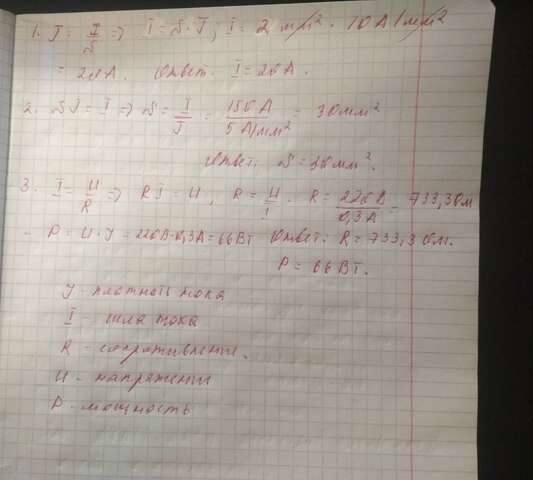 1. J = I/S => I = S·J; I = 2 мм² · 10 А/мм²
= 20А. Ответ: I = 20А.
2. SJ = I => S = I/J = 150 А/5 А/мм² = 30мм²
Ответ: S = 30мм².
3. I = U/R => RI = U, R = U/I. R = 220В/0,3А = 733,3Ом
P = U·J = 220В·0,3А = 66Вт Ответ: R = 733,3 Ом.
P = 66Вт.
J - плотность тока
I - сила тока
R - сопротивление.
U - напряжение
P - мощность